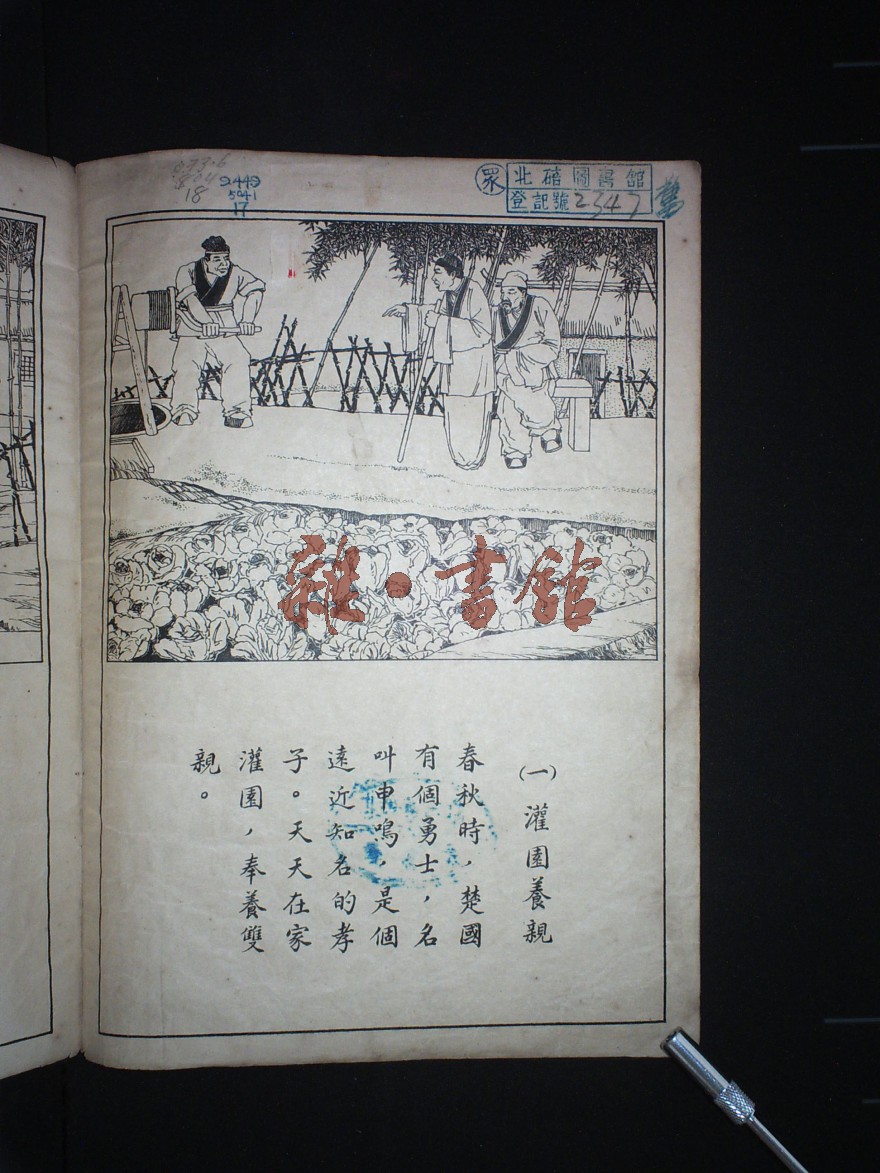 673.6
18
2449
5041
17
眾
北碚圖書館
登記號2347
舊
雜·書館
(一) 灌園養親
春秋時，楚國
有個勇士，名
叫申鳴，是個
遠近知名的孝
子。天天在家
灌園，奉養雙
親。